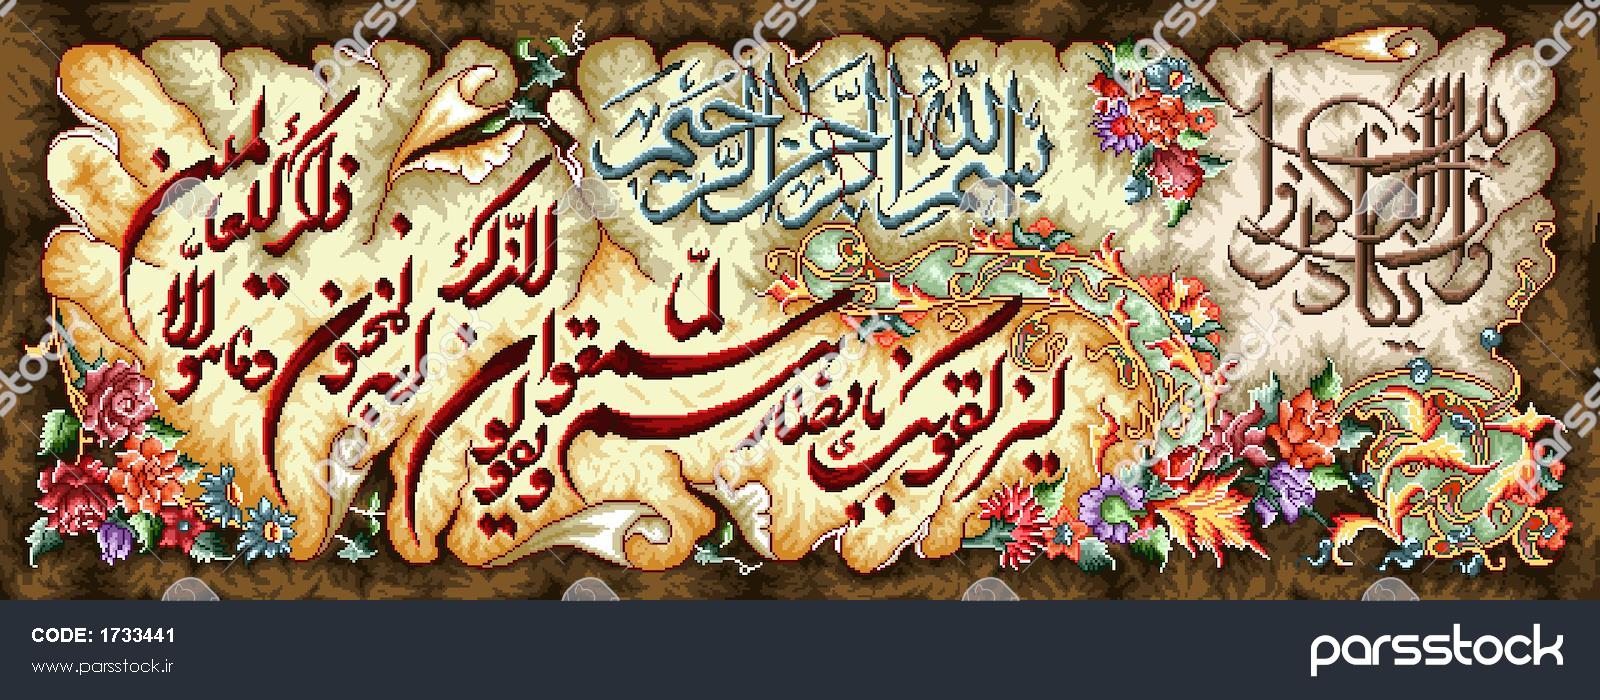 وان یکاد الذین کفروا
بسم الله الرحمن الرحیم
لیزلقونک بابصارهم لما سمعوا الذکر
ویقولون انه لمجنون
وما هو الا ذکر للعالمین
parsstock
CODE: 1733441
www.parsstock.ir